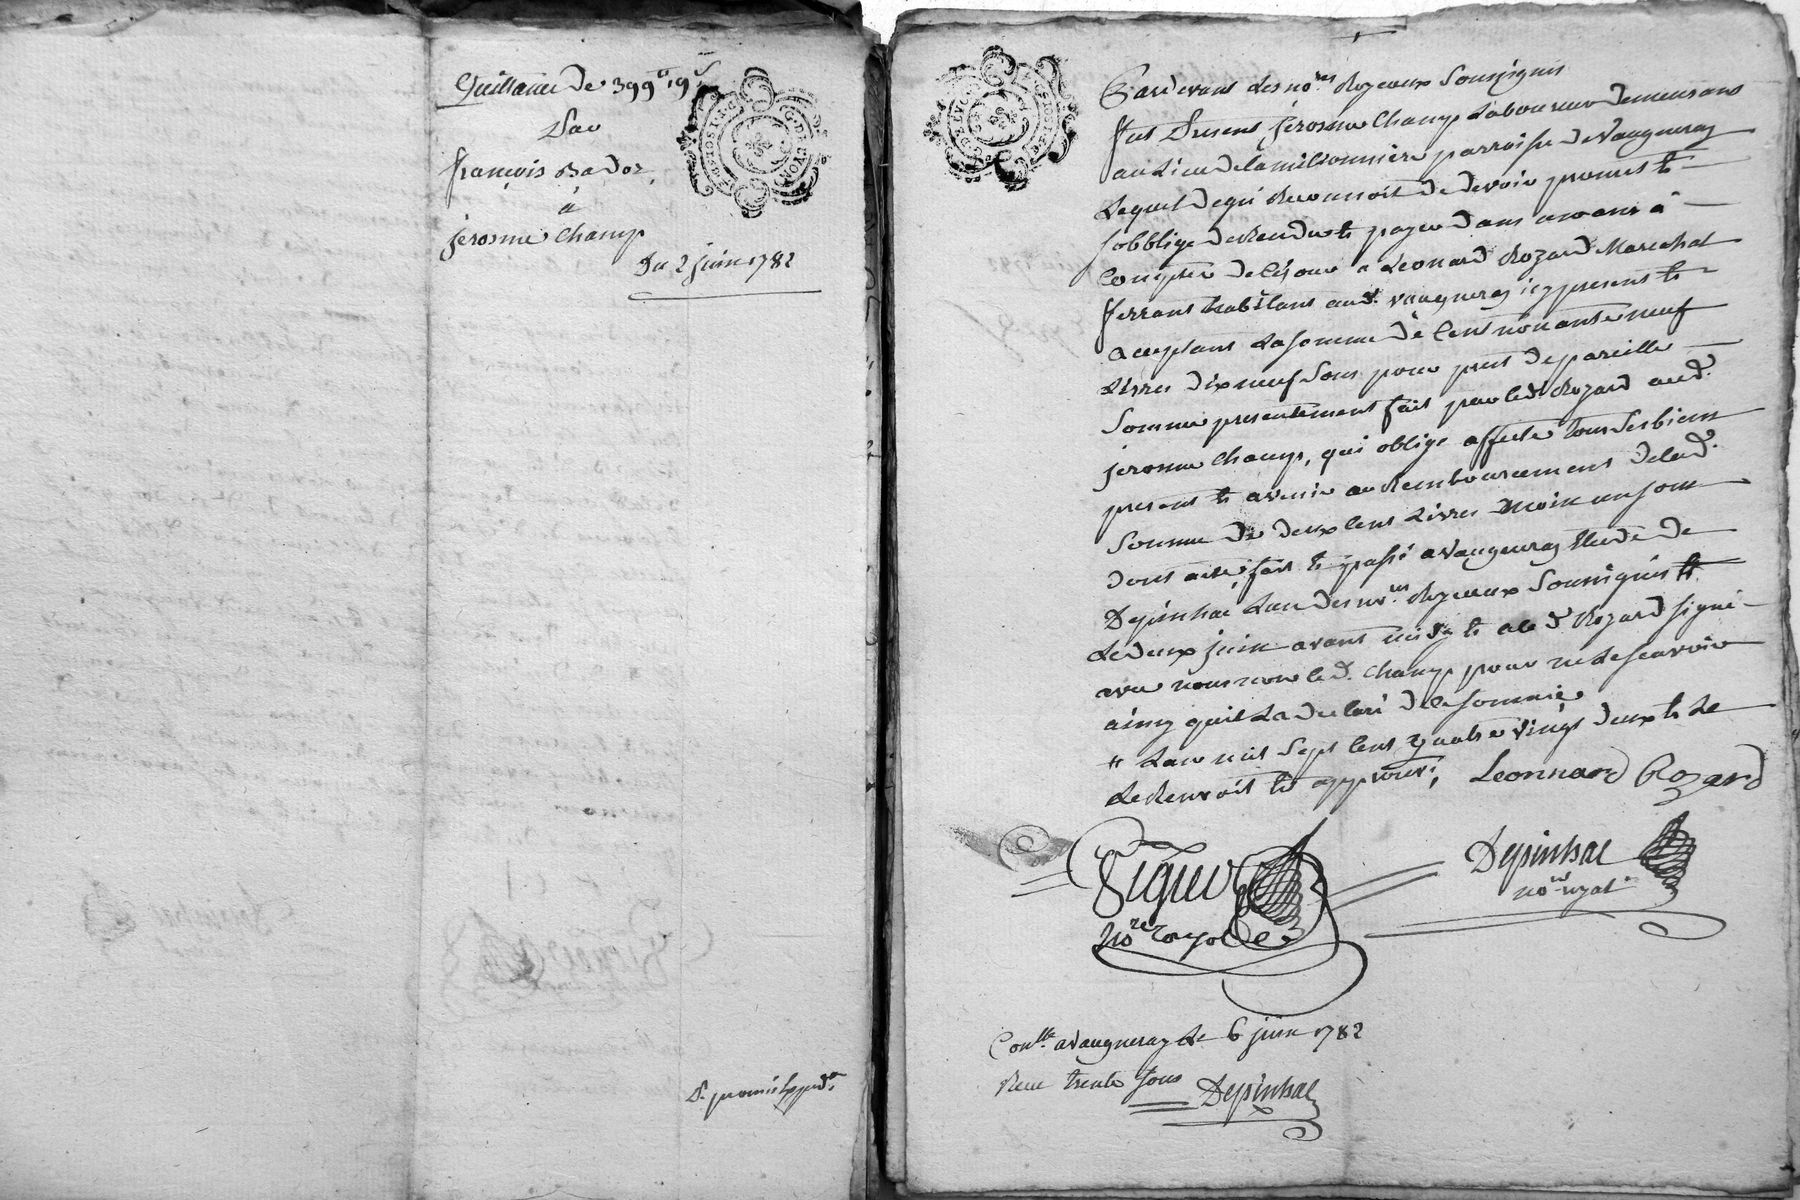 Quittance de 399ᵗᵗ 19ˢ
Par
françois Bador,
à
jerosme Champ
Du 2 juin 1782
Pardevant les noʳᵉˢ Royeaux Soussignés
fut Present jerosme Champ Laboureur demeurant
au Lieu de la milionniere parroisse de Vaugneray
Lequel de gré Reconnoit de devoir promet et
sobblige de Rendre et payer dans un an à
Compter de Cejour a Leonard Rozard Marechal
ferrant habitant aud. vaugneray icy present et
acceptant La somme de Cent nonante neuf
Livres dix neuf Sous pour pret de pareille
Somme presentement fait par led. Rozard aud.
jerosme Champ, qui oblige affecte tous Ses biens
present et avenir au Remboursement de lad.
Somme de deux Cent Livres moin un sou
dont acte, fait et passé a Vaugneray Etude de
Depinhac L'un des noʳᵉˢ Royeaux Soussignés #
Le deux juin avant midy et a led Rozard signé
avec nous non led. Champ pour ne le scavoir
ainsy quil La declaré de ce sommé
# L'an mil Sept Cent quatre vingt deux et Le
Le Renvoit et approuvé, Leonnard Rozard
Depinhac
noʳᵉ royal
noʳᵉ royal
Conˡˡᵉ a Vaugneray Le 6 juin 1782
Reçu trente sous Depinhac